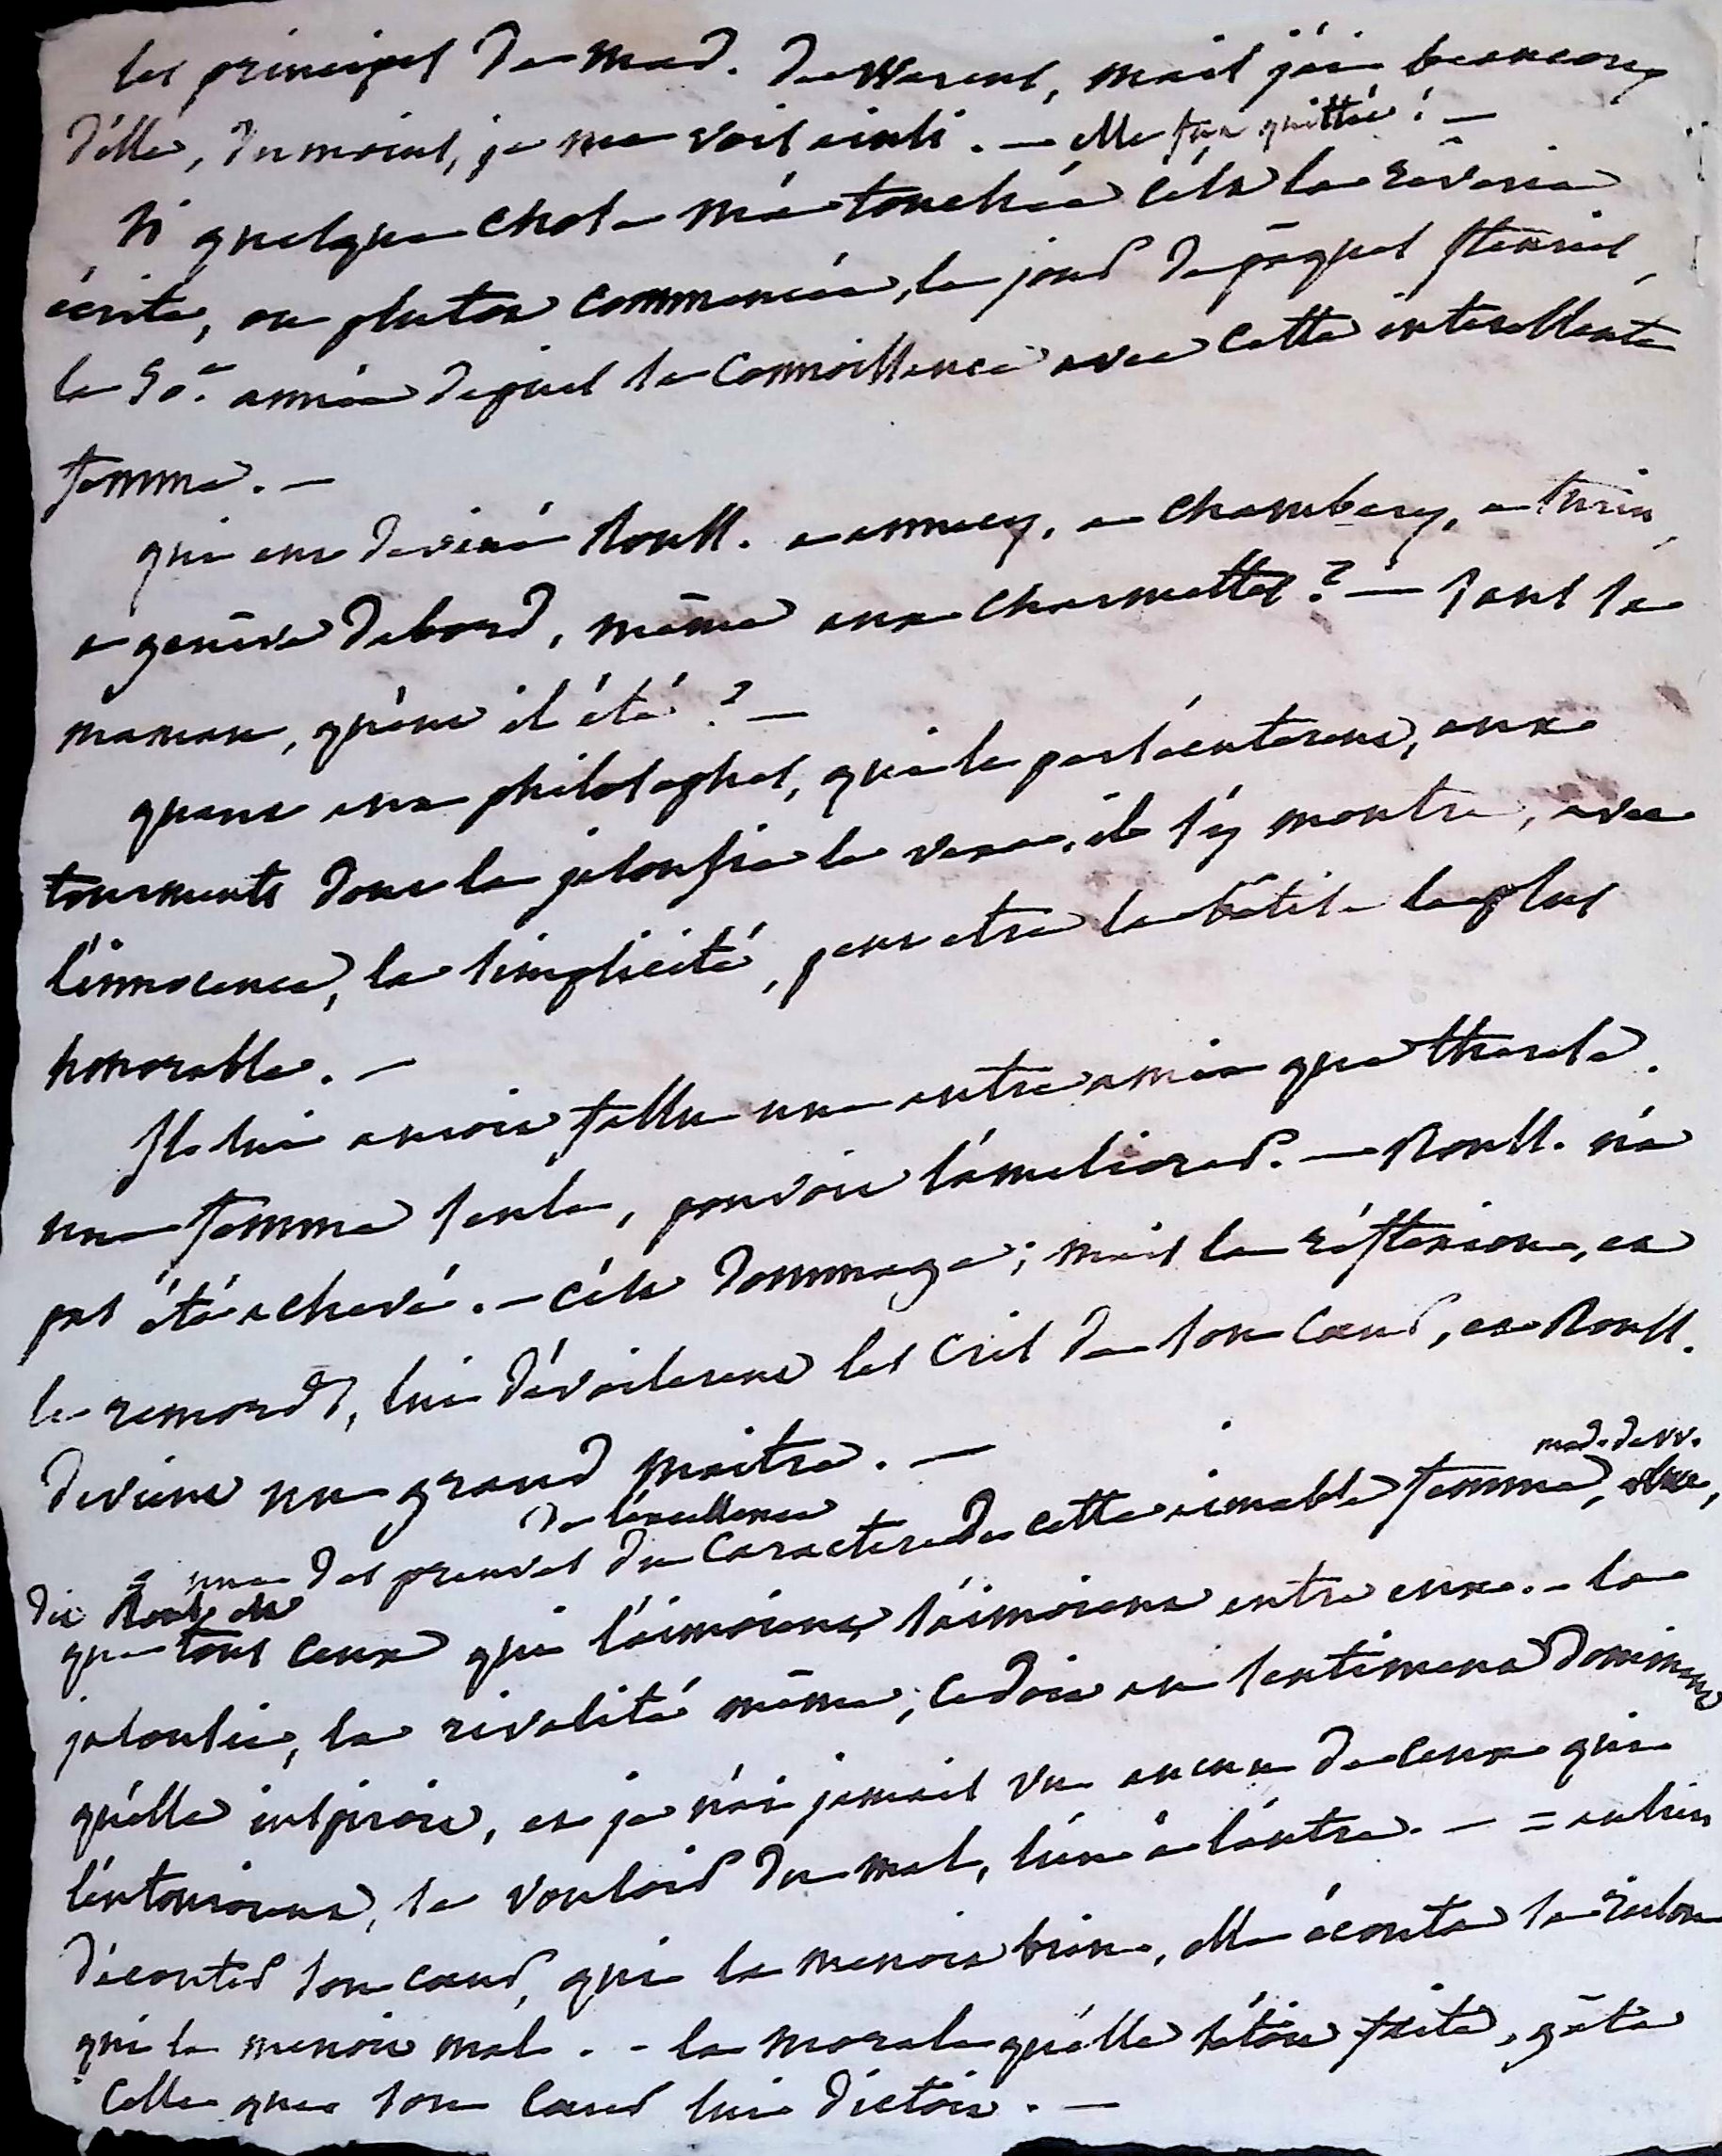 les principes de Mad. de Warens, mais j'ai beaucoup
d'elle, du moins, je me vois ainsi. — elle fut quittée! —
si quelque chose m'a touchée c'est la rêverie
écrite, ou plutot commencée, le jour de pâques fleuries,
la 50.e année depuis sa connoissance avec cette interessante
femme. —
qui eut deviné Rouss. a annecy, a chambery, a turin,
a genève dabord, même aux charmettes? — sans sa
maman, qu'eut il été? —
quant aux philosophes, qui le persécuterent, aux
tourments dont la jalousie le vexa, il s'y montre, avec
l'innocence, la simplicité, peut etre la bêtise la plus
honorable. —
Il lui auroit fallu une autre amie que therese.
une femme seule, pouvoit l'ameliorer. — Rouss. n'a
pas été achevé. — c'est dommage; mais la réflexion, et
le remords, lui dévoilerent les cris de son cœur, et Rouss.
devient un grand maitre. —
mad. de W.
de l'excellence
= une des preuves du caractere de cette aimable femme,
dit Rouss. est
que tous ceux qui l'aimoient, s'aimoient entre eux. — la
jalousie, la rivalité même, cedoit au sentiment dominant
qu'elle inspiroit, et je n'ai jamais vu aucun de ceux qui
l'entouroient, se vouloir du mal, l'un à l'autre. — = au lieu
d'écouter son cœur, qui la menoit bien, elle écouta sa raison
qui la menoit mal. - la morale qu'elle s'étoit faite, gâta
celle que son cœur lui dictoit. —